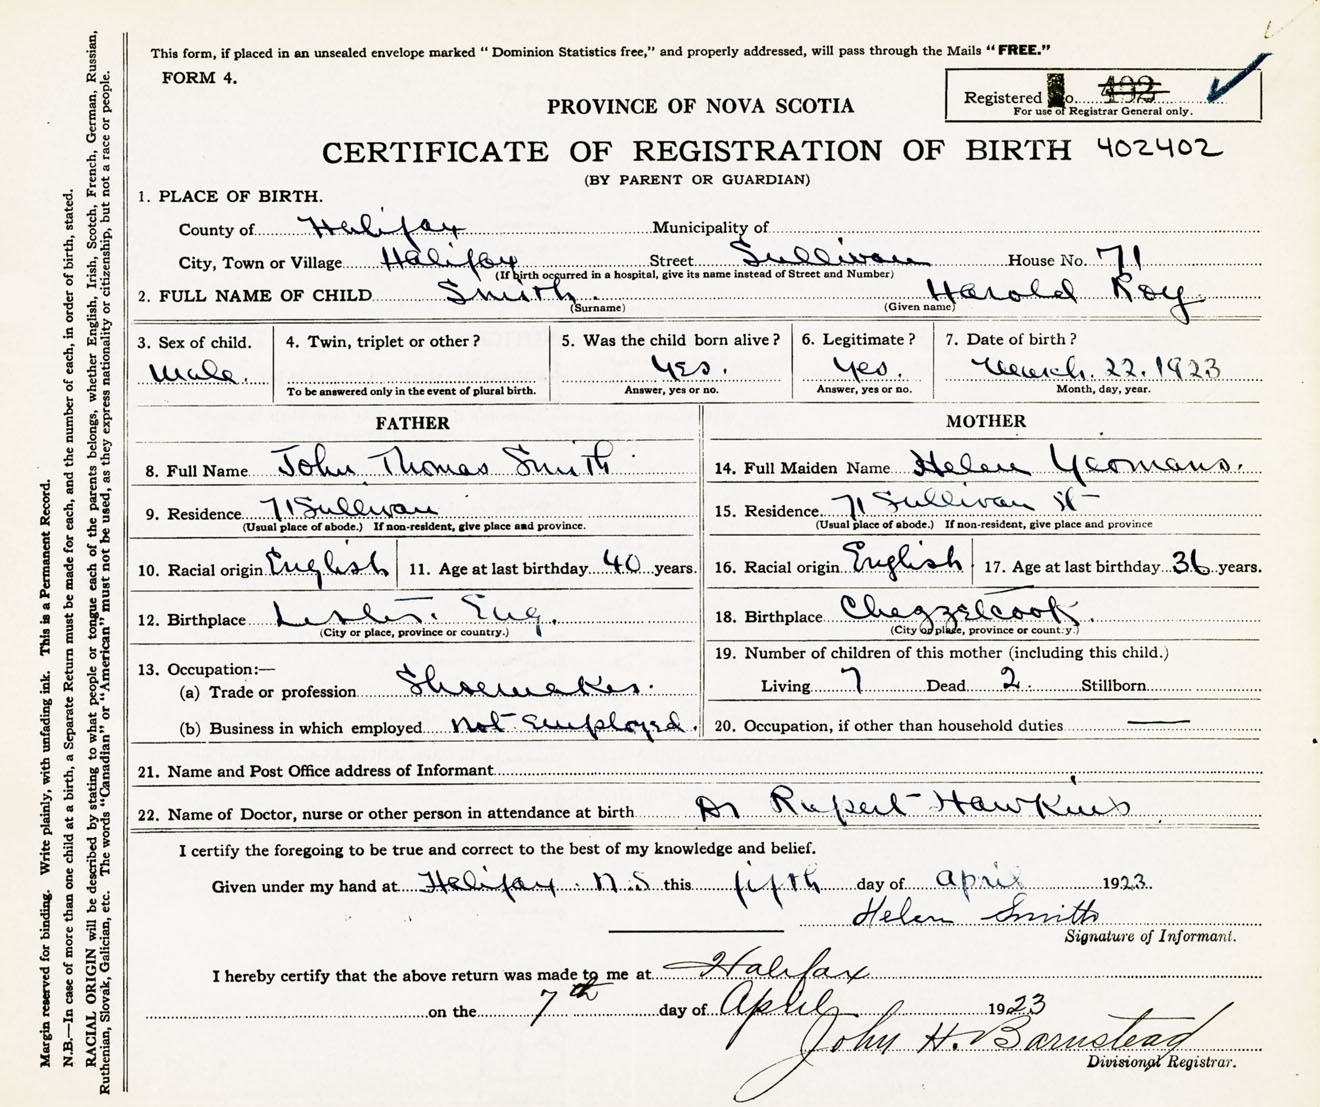 This form, if placed in an unsealed envelope marked " Dominion Statistics free," and properly addressed, will pass through the Mails "FREE."
FORM 4.
Registered No. 493
For use of Registrar General only.
PROVINCE OF NOVA SCOTIA
CERTIFICATE OF REGISTRATION OF BIRTH 402402
(BY PARENT OR GUARDIAN)
1. PLACE OF BIRTH.
County of Halifax Municipality of
City, Town or Village Halifax Street Sullivan House No. 71
(If birth occurred in a hospital, give its name instead of Street and Number)
2. FULL NAME OF CHILD Smith. Harold Roy
(Surname) (Given name)
3. Sex of child. 4. Twin, triplet or other? 5. Was the child born alive? 6. Legitimate? 7. Date of birth?
Male. Yes. Yes. March. 22. 1923
To be answered only in the event of plural birth. Answer, yes or no. Answer, yes or no. Month, day, year.
FATHER
8. Full Name John Thomas Smith
9. Residence 71 Sullivan
(Usual place of abode.) If non-resident, give place and province.
10. Racial origin English 11. Age at last birthday 40 years.
12. Birthplace Eng.
(City or place, province or country.)
13. Occupation:—
(a) Trade or profession Shoemaker.
(b) Business in which employed not employed.
MOTHER
14. Full Maiden Name Helen Yeomans.
15. Residence 71 Sullivan St
(Usual place of abode.) If non-resident, give place and province
16. Racial origin English 17. Age at last birthday 36 years.
18. Birthplace Chezzelcook.
(City or place, province or country.)
19. Number of children of this mother (including this child.)
Living 7 Dead 2. Stillborn
20. Occupation, if other than household duties —
21. Name and Post Office address of Informant
22. Name of Doctor, nurse or other person in attendance at birth Dr Rupert Hawkins
I certify the foregoing to be true and correct to the best of my knowledge and belief.
Given under my hand at Halifax. N.S this fifth day of April 1923.
Helen Smith
Signature of Informant.
I hereby certify that the above return was made to me at Halifax
on the 7th day of April 1923
John H. Barnstead
Divisional Registrar.
Margin reserved for binding. Write plainly, with unfading ink. This is a Permanent Record.
N.B.—In case of more than one child at a birth, a Separate Return must be made for each, and the number of each, in order of birth, stated.
RACIAL ORIGIN will be described by stating to what people or tongue each of the parents belongs, whether English, Irish, Scotch, French, German, Russian,
Ruthenian, Slovak, Galician, etc. The words "Canadian" or "American" must not be used, as they express nationality or citizenship, but not a race or people.